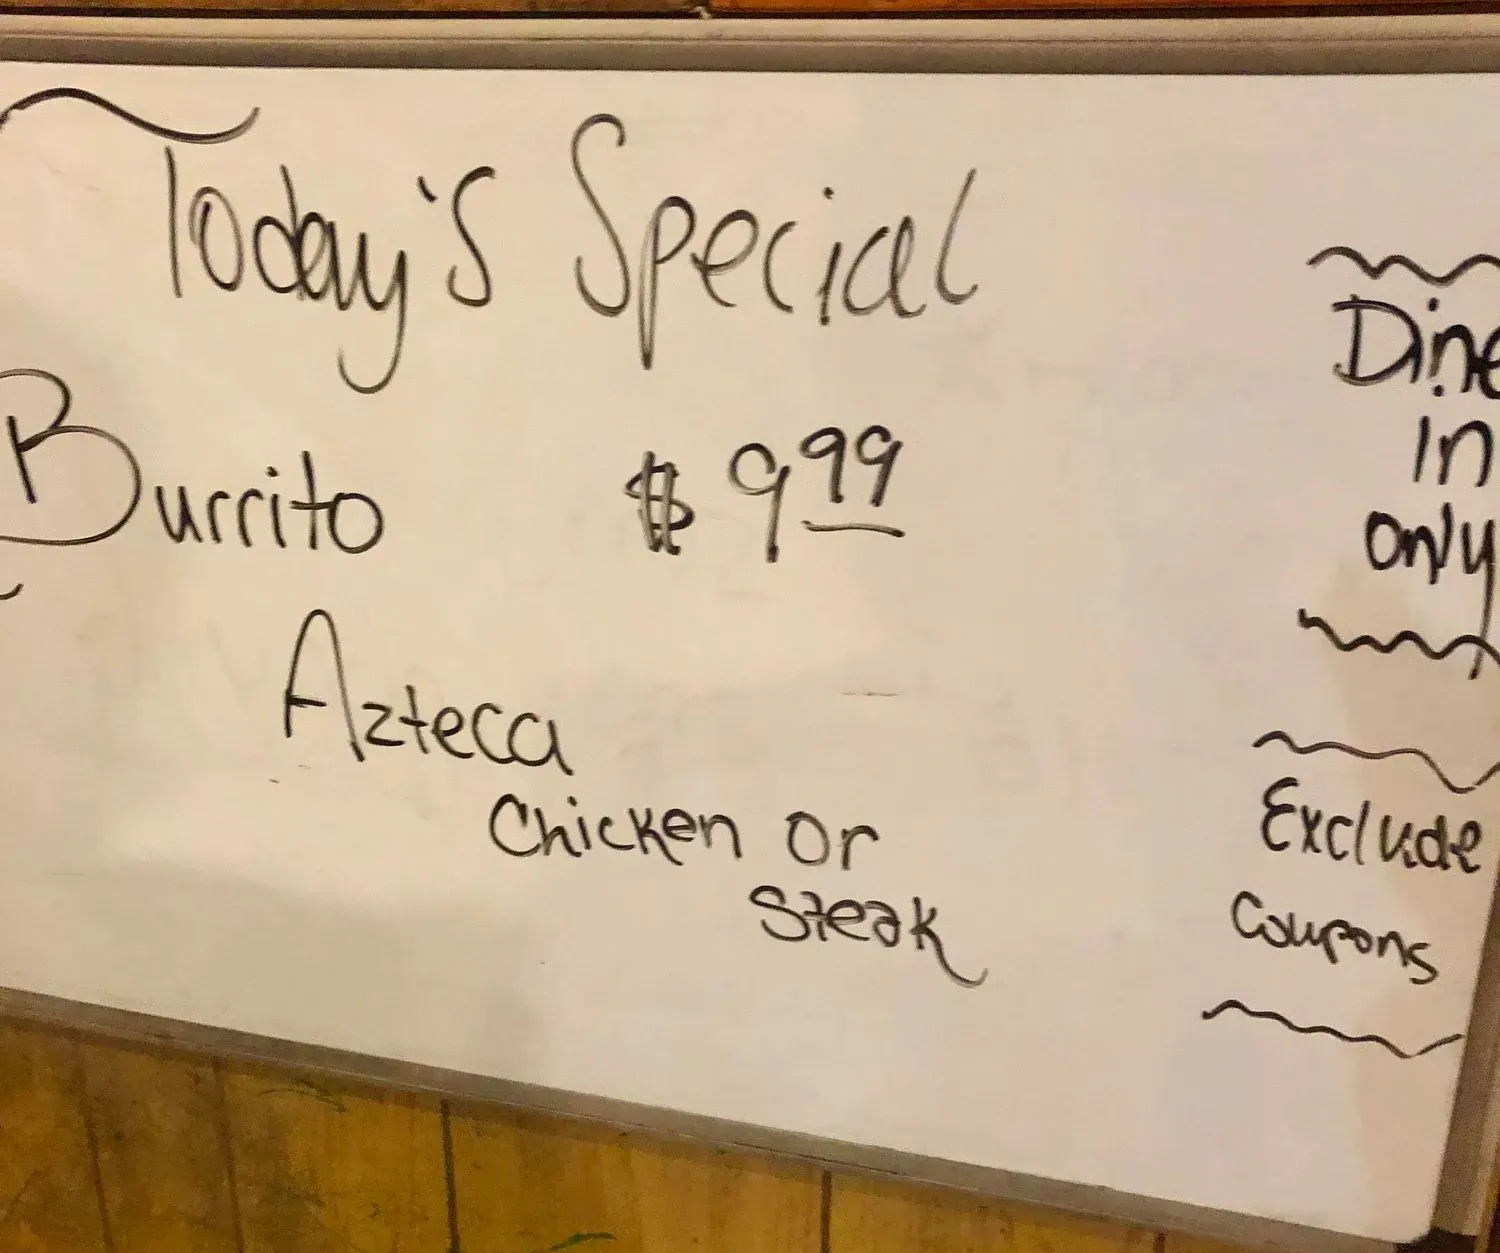 Today's Special
Burrito $9.99
Azteca
Chicken or
Steak
Dine
in
only
Exclude
Coupons